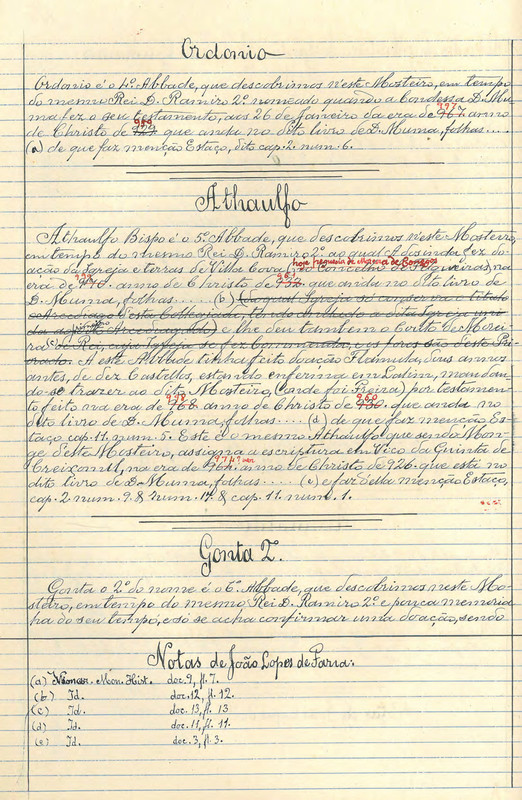 Ordonio
Ordonio é o 4º Abbade, que descobrimos n'este Mosteiro, em tempo
do mesmo Rei D. Ramiro 2º nomeado quando a Condessa D. Mu-
ma fez o seu testamento, aos 26 de Janeiro da era de 997 anno
de Christo de 959 que anda no dito livro de D. Muma, folhas....
(a) de que faz menção Estaço, dito cap. 2. num. 6.
Athaulfo
Athaulfo Bispo é o 5º Abbade, que descobrimos n'este Mosteiro,
em tempo do mesmo Rei D. Ramiro 2º ao qual Godesinda fez do-
hoje freguesia de
ação da Igreja e terras de Villa Cova, no Concelho de Felgueiras, na
era de anno de Christo de que anda no dito livro de
D. Muma, folhas.... (b) (da qual Igreja se conserva o titulo
e Arcediago desta Collegiada,
e lhe deu tambem o Couto de Morei-
ra de Rei, cuja Igreja se fez Commenda, e os foros são deste Pri-
orado. A este Abbade tinha feito doação Flamula, dois annos
antes, de dez Castellos, estando enferma em Lalim, mandan-
do-se trazer ao dito Mosteiro, (onde foi Freira) por testamen-
998 960
to feito na era de 968 anno de Christo de que anda no
dito livro de D. Muma, folhas.... (d) de que faz menção Es-
taço, cap. 11. num. 5. Este é o mesmo Athaulfo que sendo Mon-
ge deste Mosteiro, assigna a escriptura em Vico da Quinta de
Creixomil, na era de 964. anno de Christo de 926. que está no
dito livro de D. Muma, folhas.... (e) e faz della menção Estaço,
cap. 2 num. 9. & num. 14. & cap. 11. num. 1.
Gonta 2º.
Gonta o 2º do nome é o 6º Abbade, que descobrimos neste Mos-
teiro, em tempo do mesmo Rei D. Ramiro 2º e pouca memoria
ha do seu tempo, e só se acha confirmar uma doação, sendo
Notas de João Lopes de Faria:
(a) Vimar. Mon. Hist. doc. 9, fl. 7.
(b) Id. doc. 12, fl. 12.
(c) Id. doc. 13, fl. 13
(d) Id. doc. 11, fl. 11.
(e) Id. doc. 3, fl. 3.